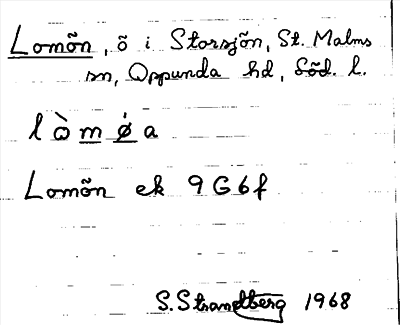 Lomõn, õ i Storsjõn, St. Malms
sn, Oppunda hd, Sõd. l.
l ò m ǿ a
Lomõn ek 9G6f
S. Strandberg 1968